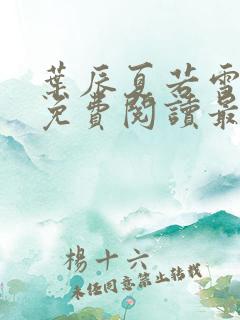 葉辰夏若雪
免費閱讀最
楊十六
未经同意禁止转载